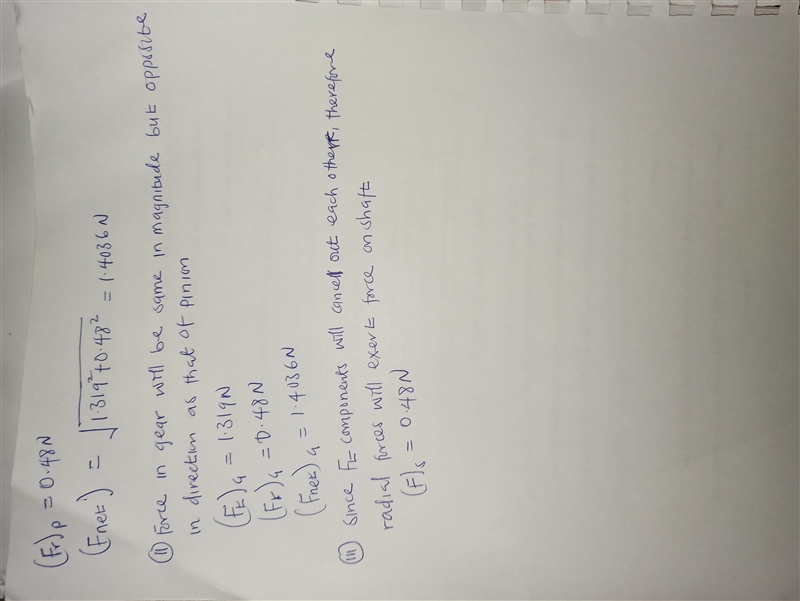 (Fr)p = 0.48N
(Fnet) = √1.319²+0.48² = 1.4036N
(ii) Force in gear will be same in magnitude but opposite
in direction as that of pinion
(Ft)G = 1.319N
(Fr)G = 0.48N
(Fnet)G = 1.4036N
(iii) Since Ft components will cancel out each other, therefore
radial forces will exert force on shaft
(F)s = 0.48N